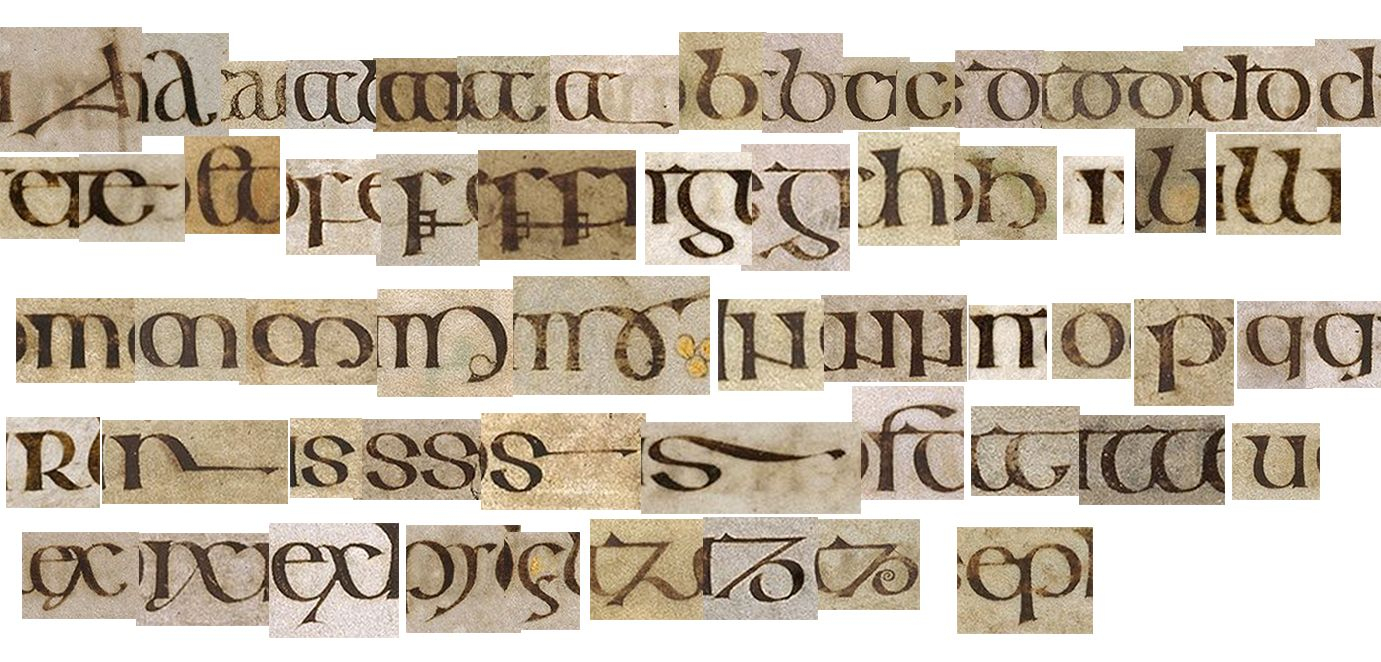 A a a a a a a b b c c d d d d d
e e e f f ff g g h h i l ll
m m m m m n nn n o p q q
R r s ss s s ft t tt u
ex x ex y y z z z ep